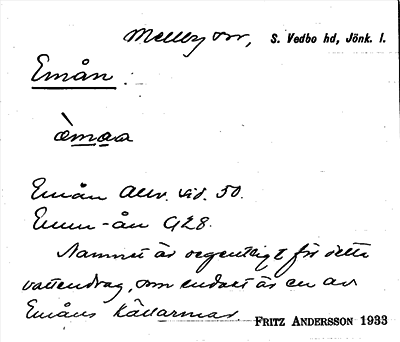 Mellby sn, S. Vedbo hd, Jönk. l.
Emån :
èmaa
Emån Allv. vid. 50.
Emm-ån G28.
Namnet är oegentligt för detta
vattendrag, som endast är en av
Emåns källarmar. FRITZ ANDERSSON 1933